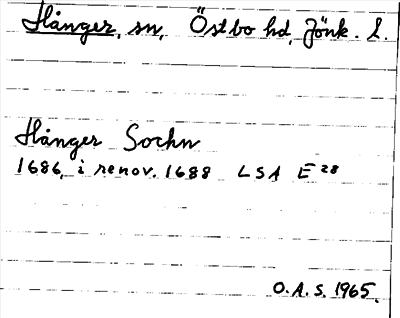 Hånger, sn, Östbo hd, Jönk. l.
Hånger Sochn
1686, i renov. 1688 LSA E 28
O.A.S. 1965.